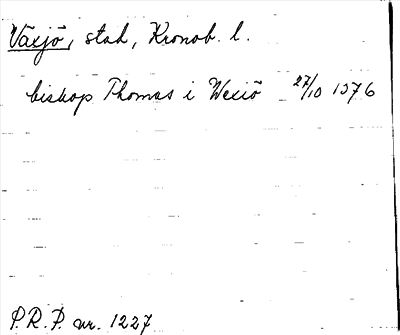 Växjö, stad, Kronob. l.
biskop Thomas i Wexiö 27/10 1376
P.R.P. nr. 1227